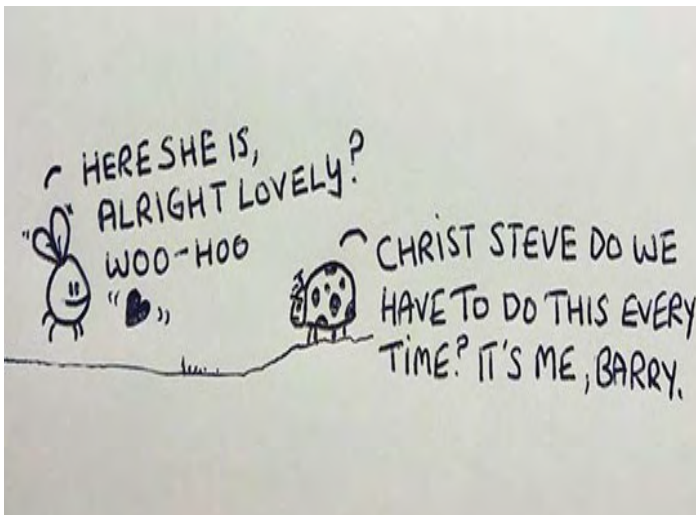 HERE SHE IS,
ALRIGHT LOVELY?
WOO-HOO
CHRIST STEVE DO WE
HAVE TO DO THIS EVERY
TIME? IT'S ME, BARRY.